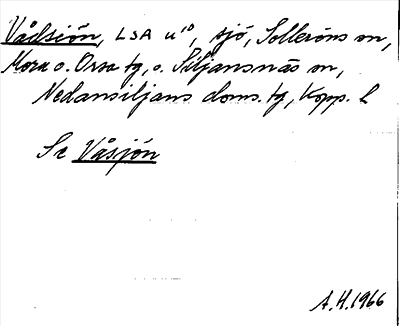 Vådsjön, LSA u¹⁰, sjö, Solleröns sn,
Mora o. Orsa tg, o. Siljansnäs sn,
Nedansiljans doms. tg, Kopp. l
Se Våsjön
A.H. 1966